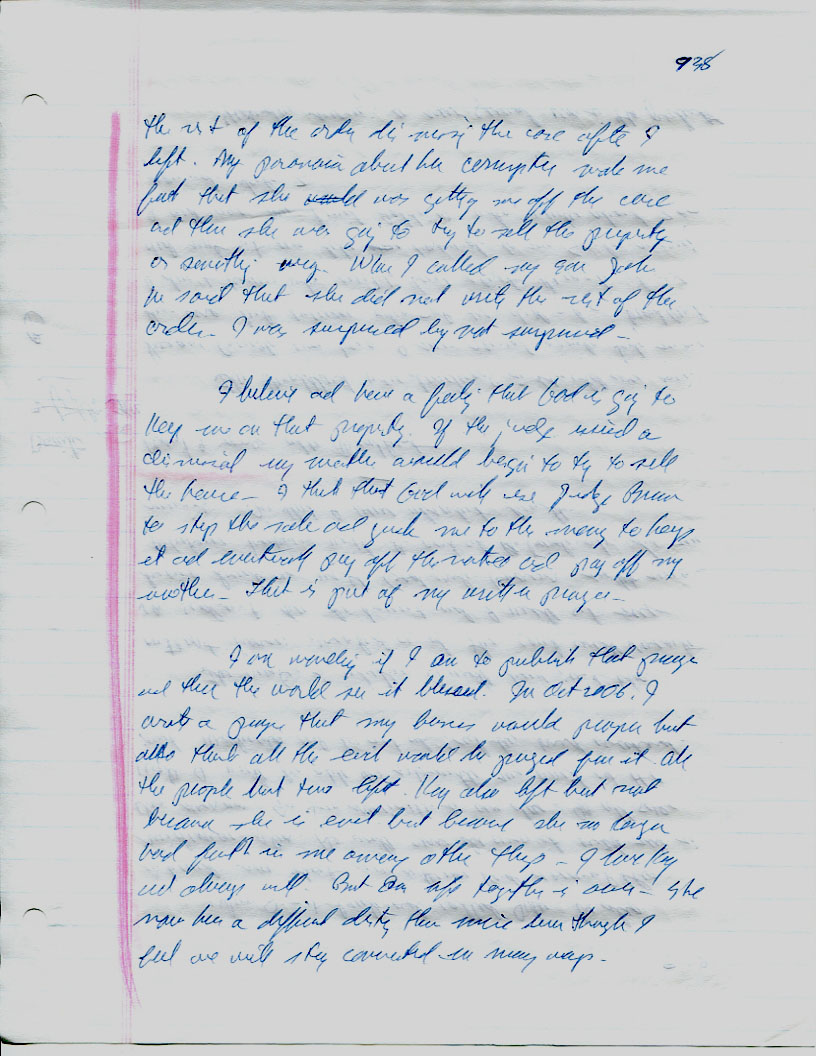 938
the rest of the order dismissing the case after I
left. My paranoia about her corruption made me
feel that she would was getting me off the case
and then she was going to try to sell the property
or something
When I called my son Josh
he said that she did not write the rest of the
order. I was surprised by not surprised -
I believe and have a feeling that God is going to
keep me on that property. If the judge issued a
dismissal my mother would begin to try to sell
the house - I think that God will use Judge
to stop the sale and guide me to the money to keep
it and eventually pay off the and pay off my
mother - That is part of my written prayer -
I am wondering if I am to publish that prayer
and then the world see it blessed. In Oct 2006, I
wrote a prayer that my business would prosper but
also that all the evil would be purged from it. All
the people but two left. Kay also left but not
because she is evil but because she no longer
had faith in me among other things - I love Kay
and always will. But our life together is over - she
now has a different destiny than mine even though I
feel we will stay connected in many ways.